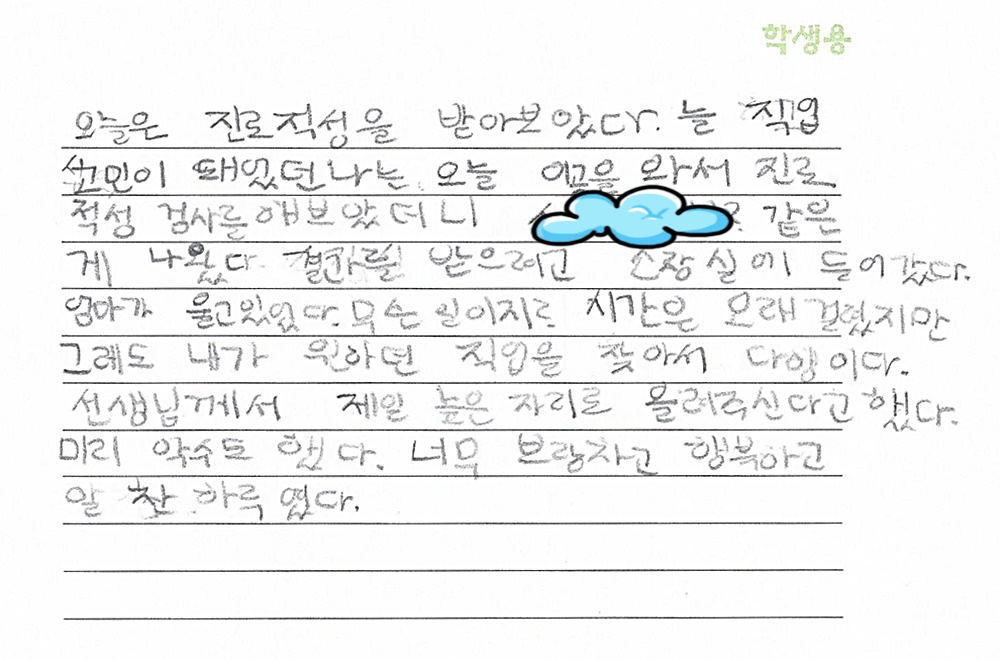 학생용
오늘은 진로적성을 받아보았다. 늘 직업
고민이 돼었던나는 오늘 이곳을 와서 진로
적성 검사를 해보았더니 같은
게 나왔다 결과를 받으려고 소장실에 들어갔다.
엄마가 울고있었다. 무슨일이지르 시간은 오래걸렸지만
그레도 내가 원하던 직업을 찾아서 다행이다.
선생님께서 제일 높은 자리로 올려주신다고했다.
미리 악수도 했다. 너무 브랑차고 행복하고
알찬 하루였다.